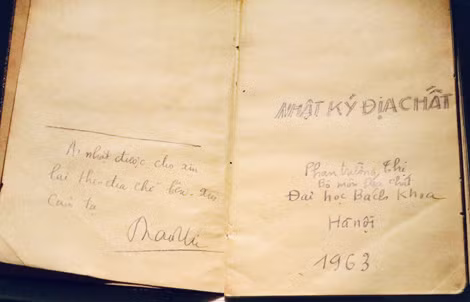 Ai nhặt được cho xin
lại theo địa chỉ bên. Xin
Cảm tạ
NHẬT KÝ ĐỊA CHẤT
Phan trường Thị
Bộ môn Địa chất
Đại học Bách Khoa
Hànội
1963